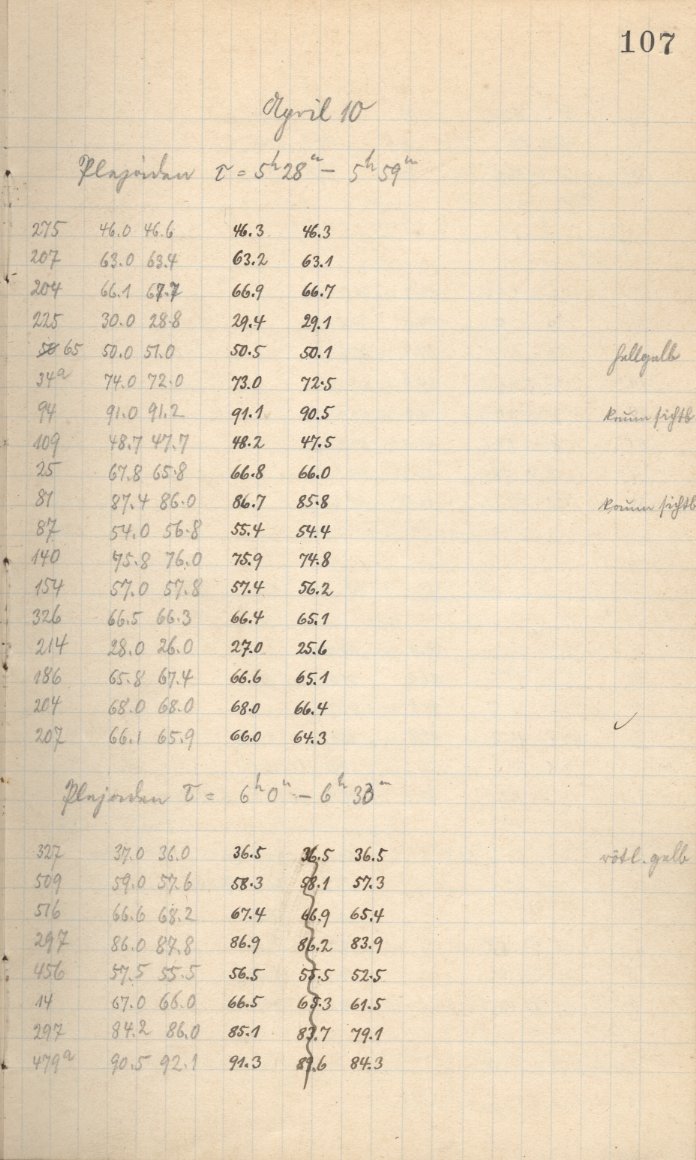 107
April 10
Plejaden τ = 5h 28m – 5h 59m
275 46.0 46.6 46.3 46.3
207 63.0 63.4 63.2 63.1
204 66.1 67.7 66.9 66.7
225 30.0 28.8 29.4 29.1
65 50.0 51.0 50.5 50.1 hellgelb
34a 74.0 72.0 73.0 72.5
94 91.0 91.2 91.1 90.5 kaum sichtb
109 48.7 47.7 48.2 47.5
25 67.8 65.8 66.8 66.0
81 87.4 86.0 86.7 85.8 kaum sichtb
87 54.0 56.8 55.4 54.4
140 75.8 76.0 75.9 74.8
154 57.0 57.8 57.4 56.2
326 66.5 66.3 66.4 65.1
214 28.0 26.0 27.0 25.6
186 65.8 67.4 66.6 65.1
204 68.0 68.0 68.0 66.4
207 66.1 65.9 66.0 64.3
Plejaden τ = 6h 0m – 6h 33m
327 37.0 36.0 36.5 36.5 36.5 rötl. gelb
509 59.0 57.6 58.3 58.1 57.3
516 66.6 68.2 67.4 66.9 65.4
297 86.0 87.8 86.9 86.2 83.9
456 57.5 55.5 56.5 55.5 52.5
14 67.0 66.0 66.5 65.3 61.5
297 84.2 86.0 85.1 83.7 79.1
479a 90.5 92.1 91.3 89.6 84.3